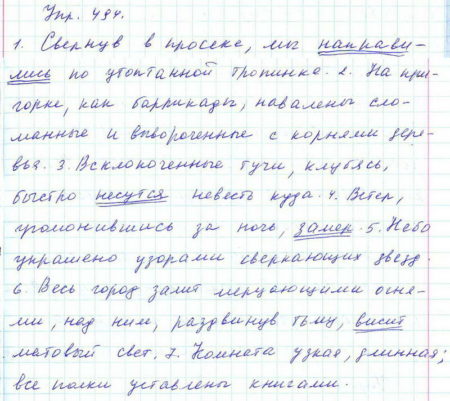 Упр. 494.
1. Свернув в просеке, мы направи-
лись по утоптанной тропинке. 2. На при-
горке, как баррикады, навалены сло-
манные и вывороченные с корнями дере-
вья. 3. Всклокоченные тучи, клубясь,
быстро несутся невесть куда. 4. Ветер,
угомонившись за ночь, замер. 5. Небо
украшено узорами сверкающих звезд.
6. Весь город залит мерцающими огня-
ми, над ним, раздвинув тьму, висит
матовый свет. 7. Комната узкая, длинная;
все полки уставлены книгами.